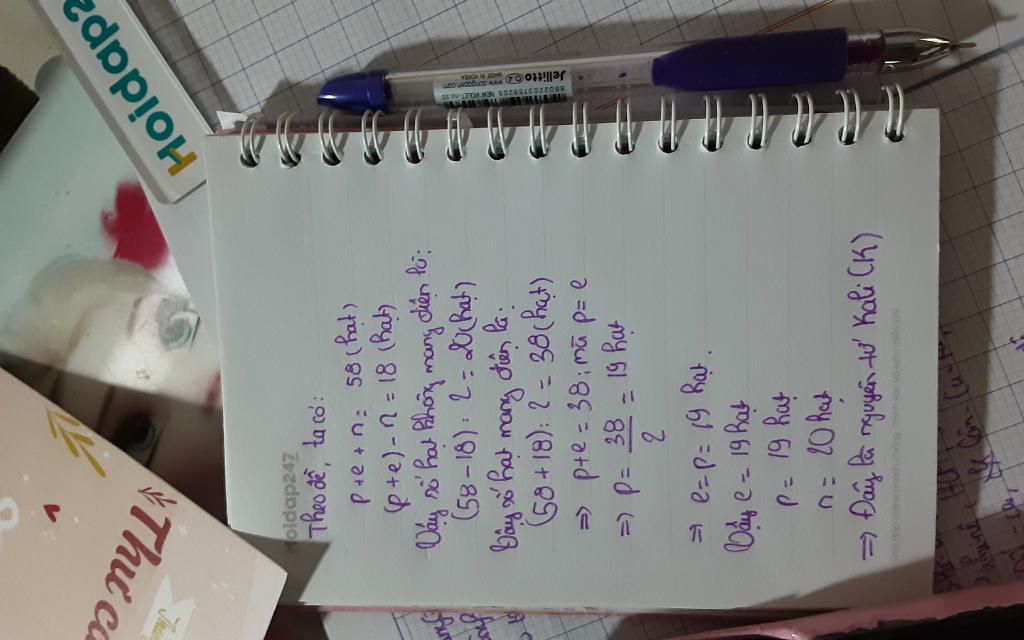 Hoidap2
Jellitto 0.4
MADE IN KOREA
www.dongapen.com
NEW VIOLET-no.20
8802203758205
Hoidap247
Theo đề, ta có:
p + e + n = 58 (hạt)
(p + e) - n = 18 (hạt)
Vậy số hạt không mang điện là:
(58 - 18) : 2 = 20 (hạt)
Vậy số hạt mang điện là:
(58 + 18) : 2 = 38 (hạt)
=> p + e = 38; mà p = e
=> p = 38/2 = 19 hạt
=> e = p = 19 hạt.
Vậy e = 19 hạt
p = 19 hạt
n = 20 hạt
=> Đây là nguyên tử Kali (K)
Thư cả